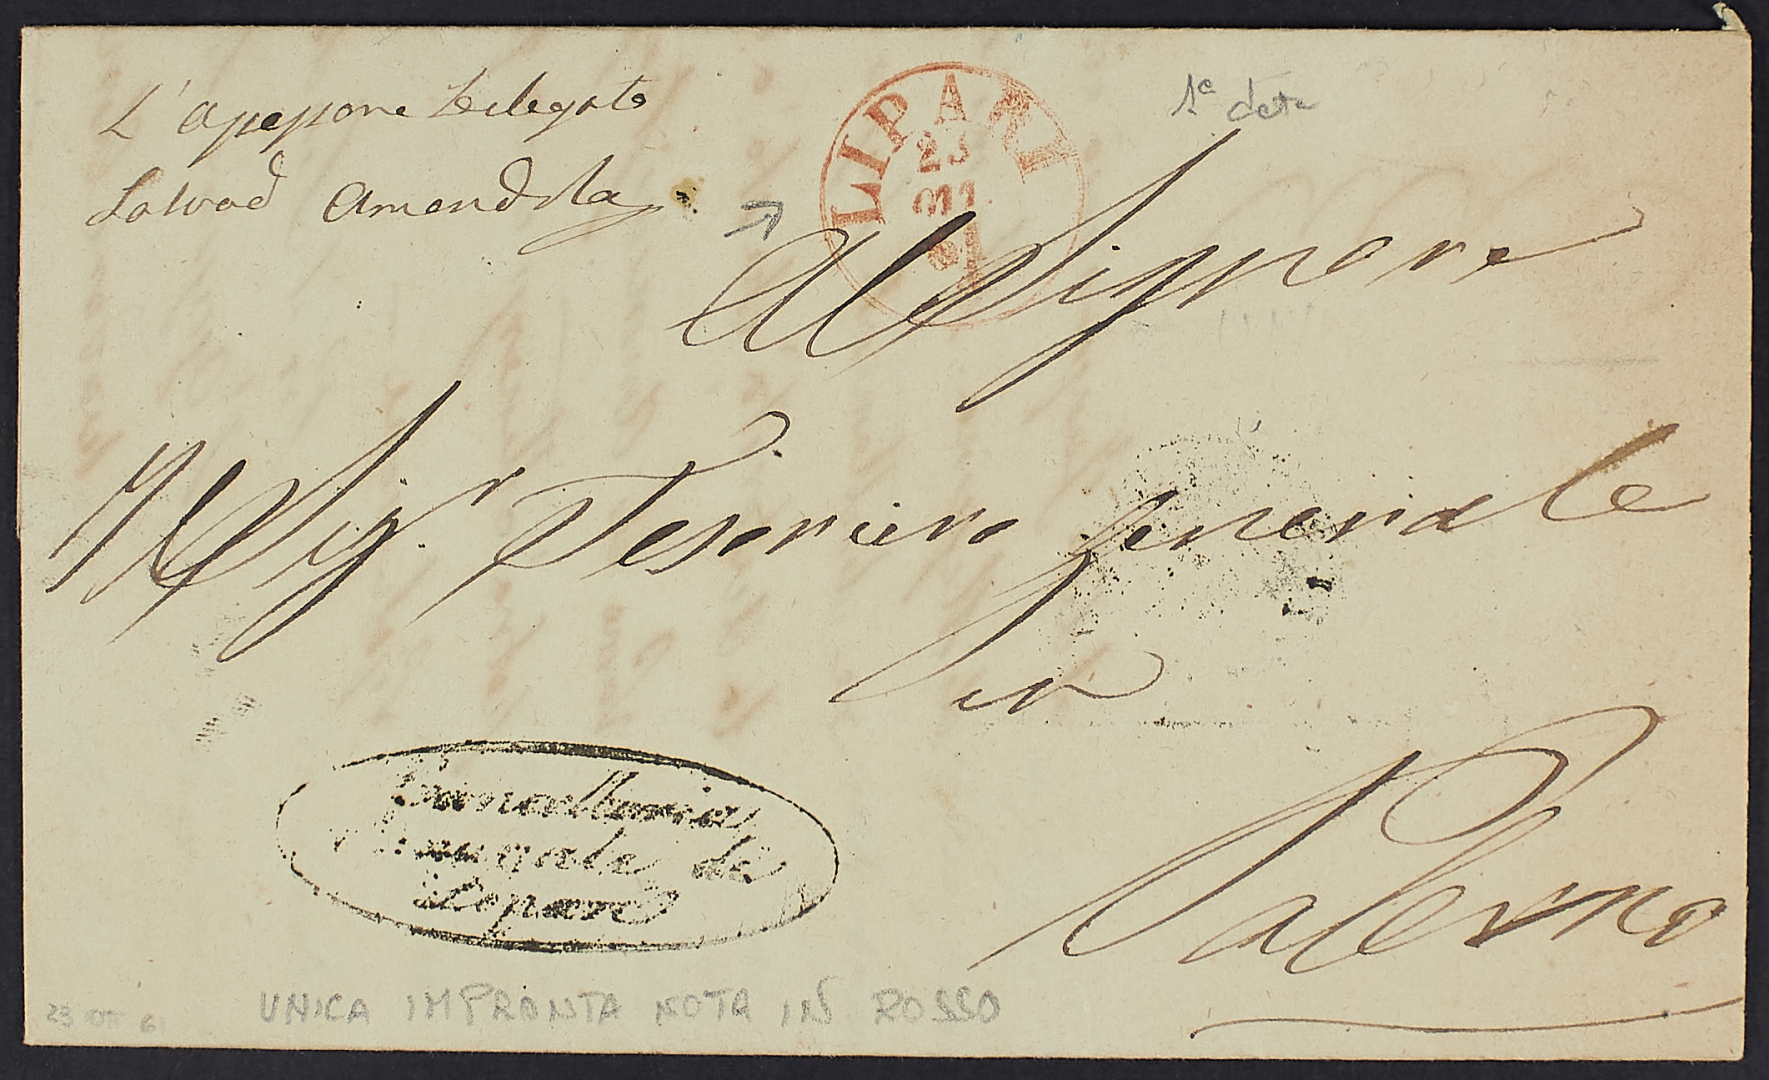 L'Assessore Delegato
Salvad Amendola
1a data
LIPARI
23
OTT
61
Al Signore
Il Sigr Tesoriere Generale
in
Palermo
Cancelleria
Comunale di
Lipari
23 61
UNICA IMPRONTA NOTA IN ROSSO